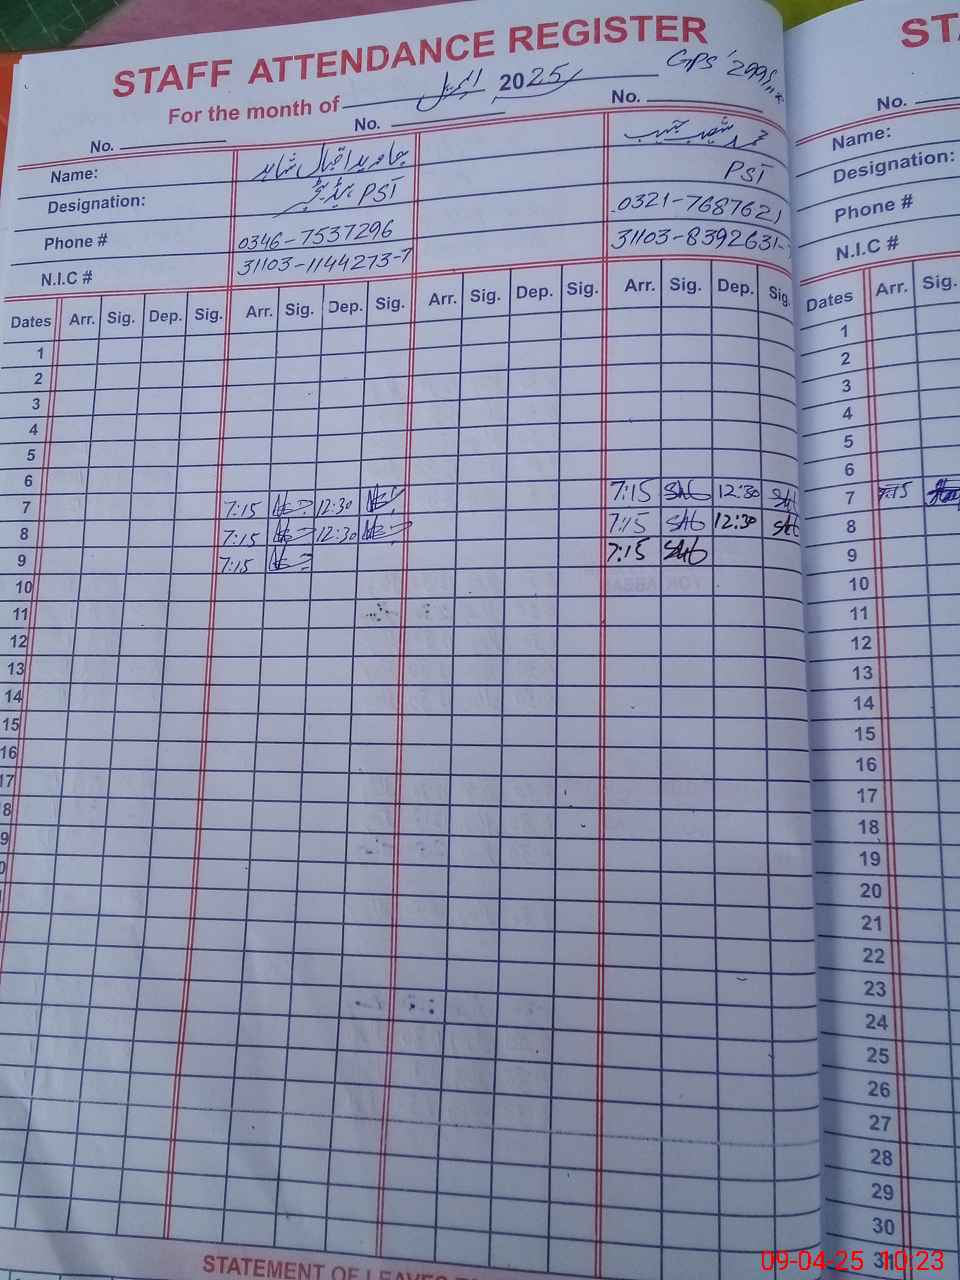 STAFF ATTENDANCE REGISTER
For the month of اپریل 2025 GPS 299
No. No. No.
Name: جاوید اقبال شاہد محمد شعیب
Designation: PST PST
Phone # 0346-7537296 0321-7687621
N.I.C # 31103-1144273-7 31103-8392631-
Dates Arr. Sig. Dep. Sig. Arr. Sig. Dep. Sig. Arr. Sig. Dep. Sig. Arr. Sig. Dep. Sig.
1
2
3
4
5
6
7 7:15 12:30 7:15 12:30
8 7:15 12:30 7:15 12:30
9 7:15 7:15
10
11
12
13
14
15
16
17
8
9
0
STATEMENT OF LEAVES
ST
No.
Name:
Designation:
Phone #
N.I.C #
Dates Arr. Sig.
1
2
3
4
5
6
7 7:15
8
9
10
11
12
13
14
15
16
17
18
19
20
21
22
23
24
25
26
27
28
29
30
31
09-04-25 10:23